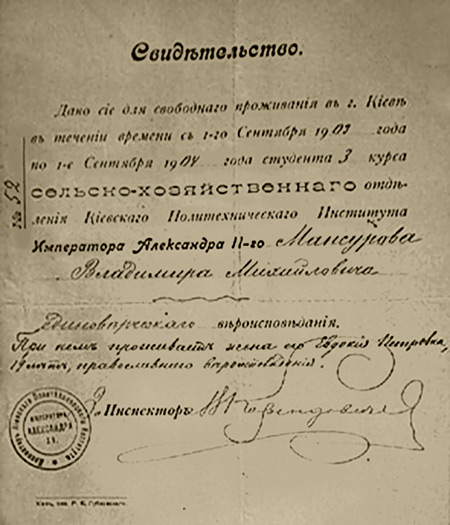 Свидѣтельство.
№ 52
Дано сіе для свободнаго проживанія въ г. Кіевѣ
въ теченіи времени съ 1-го Сентября 1903 года
по 1-е Сентября 1904 года студента 3 курса
сельско-хозяйственнаго отдѣ-
ленія Кіевскаго Политехническаго Института
Императора Александра II-го Мансурова
Владимира Михайловича
Единовѣрческаго вѣроисповѣданія.
При немъ проживаетъ жена Евдокія Петровна,
19 лѣтъ, православнаго вѣроисповѣданія.
Инспекторъ
ИМПЕРАТОРА
АЛЕКСАНДРА
II.